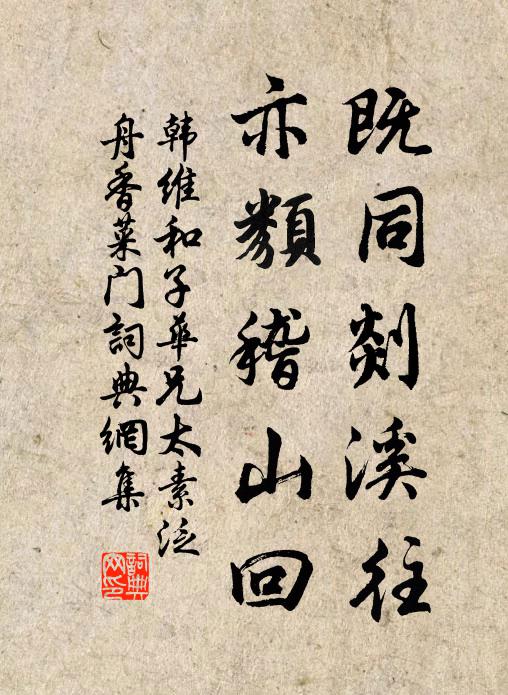 既同剡溪往
亦類稽山回
韩維和子華兄太素泛
舟香菜门詞典網集
詞典
网印